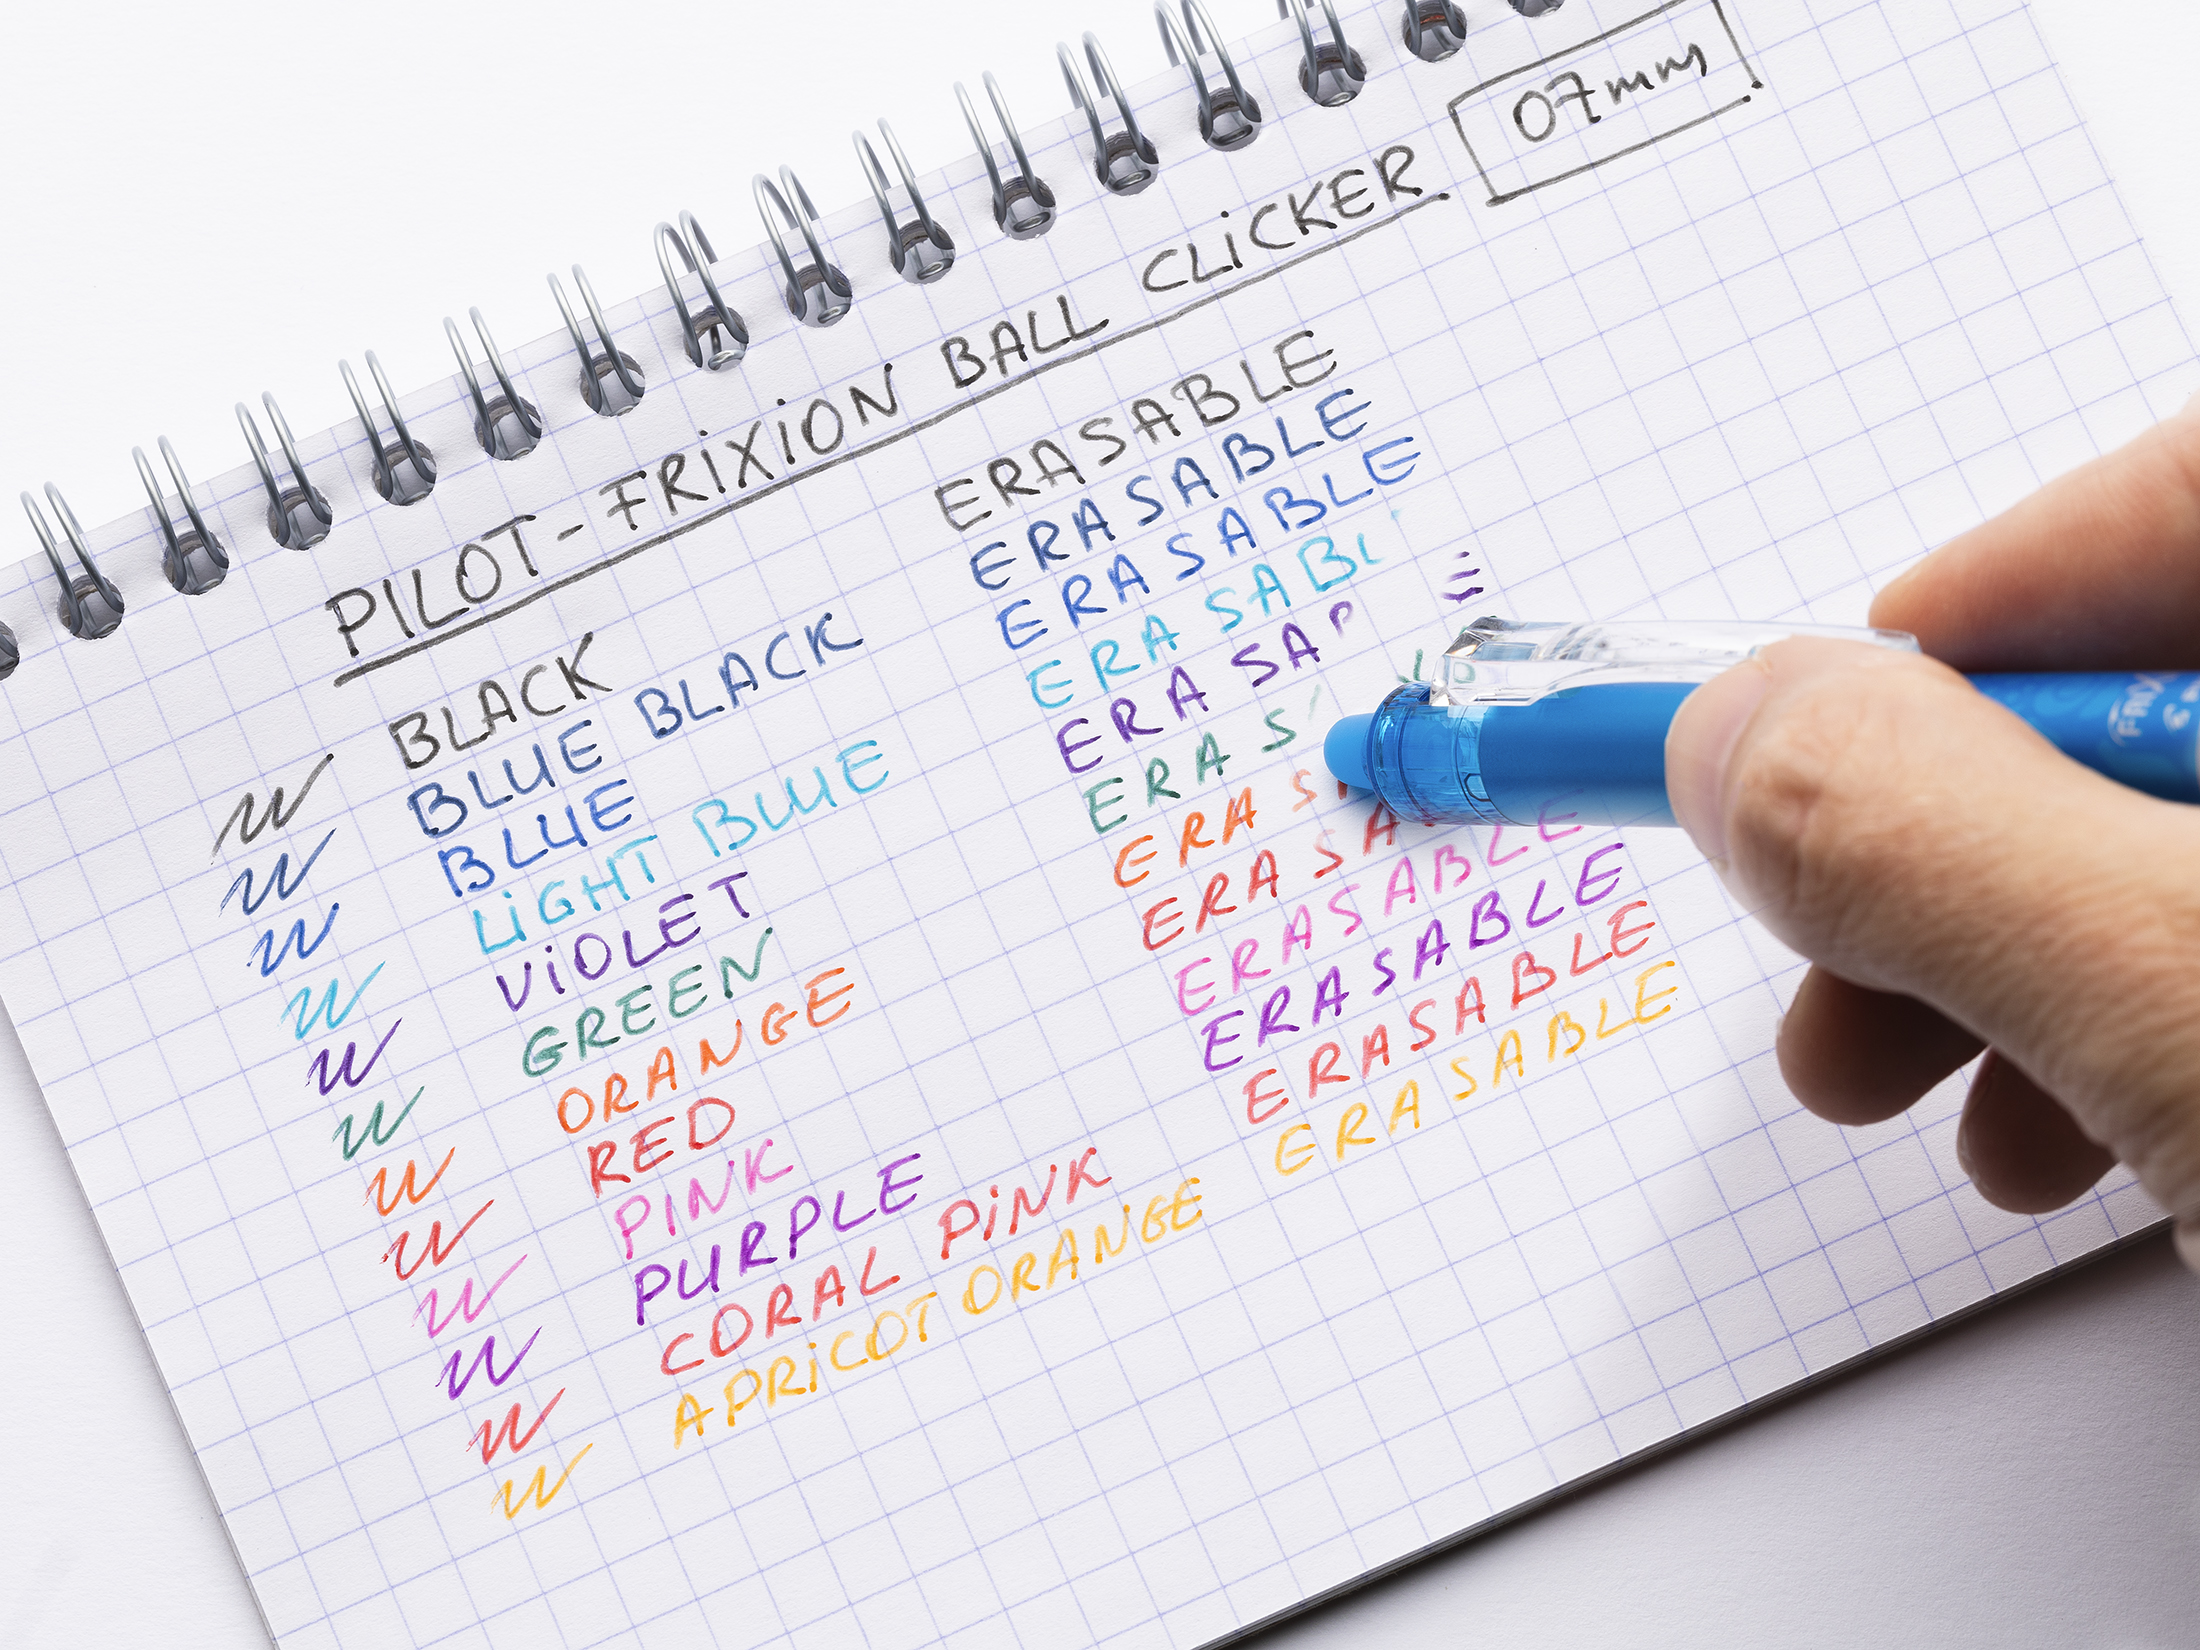 07mm
PILOT-FRiXiON BALL CLiCKER
BLACK ERASABLE
BLUE BLACK ERASABLE
BLUE ERASABLE
LiGHT BLUE ERASABL
ViOLET ERASA E
GREEN ERAS
ORANGE ERAS
RED ERASA
PINK ERASABLE
PURPLE ERASABLE
CORAL PiNK ERASABLE
APRiCOT ORANGE ERASABLE